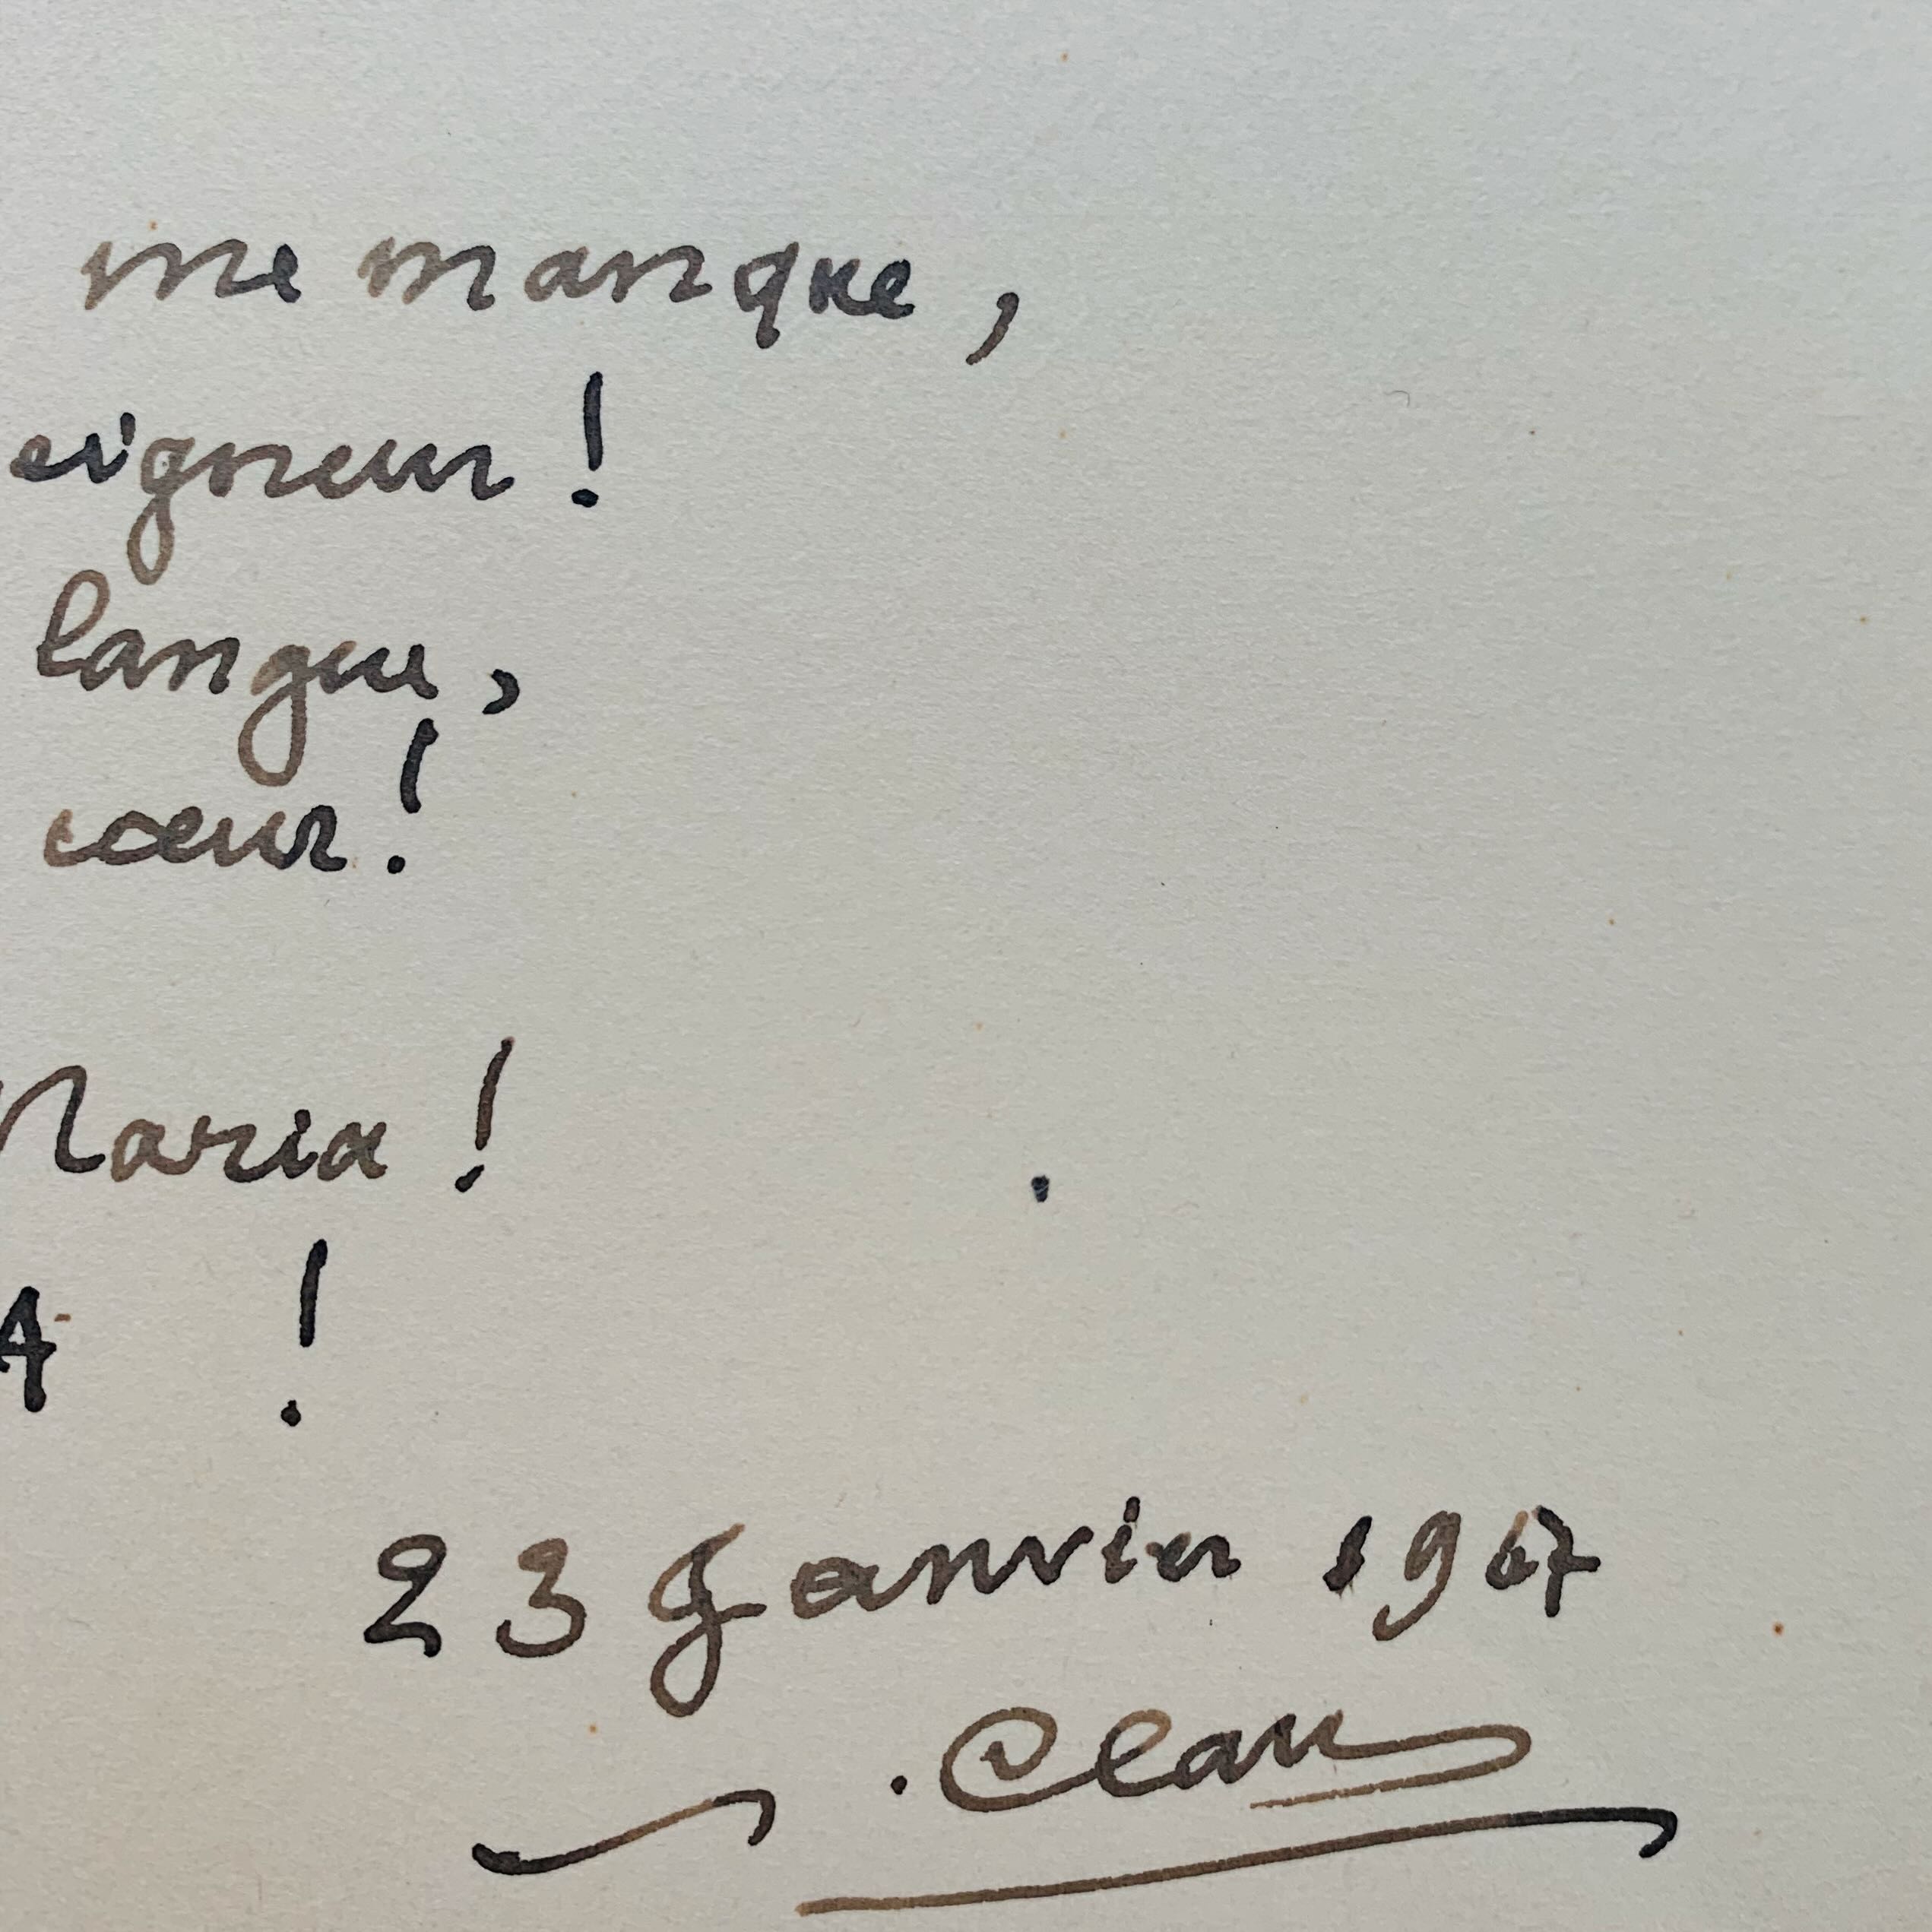 me manque,
eigneur !
langue,
cœur !
Maria !
A !
23 Janvier 1967
Clau